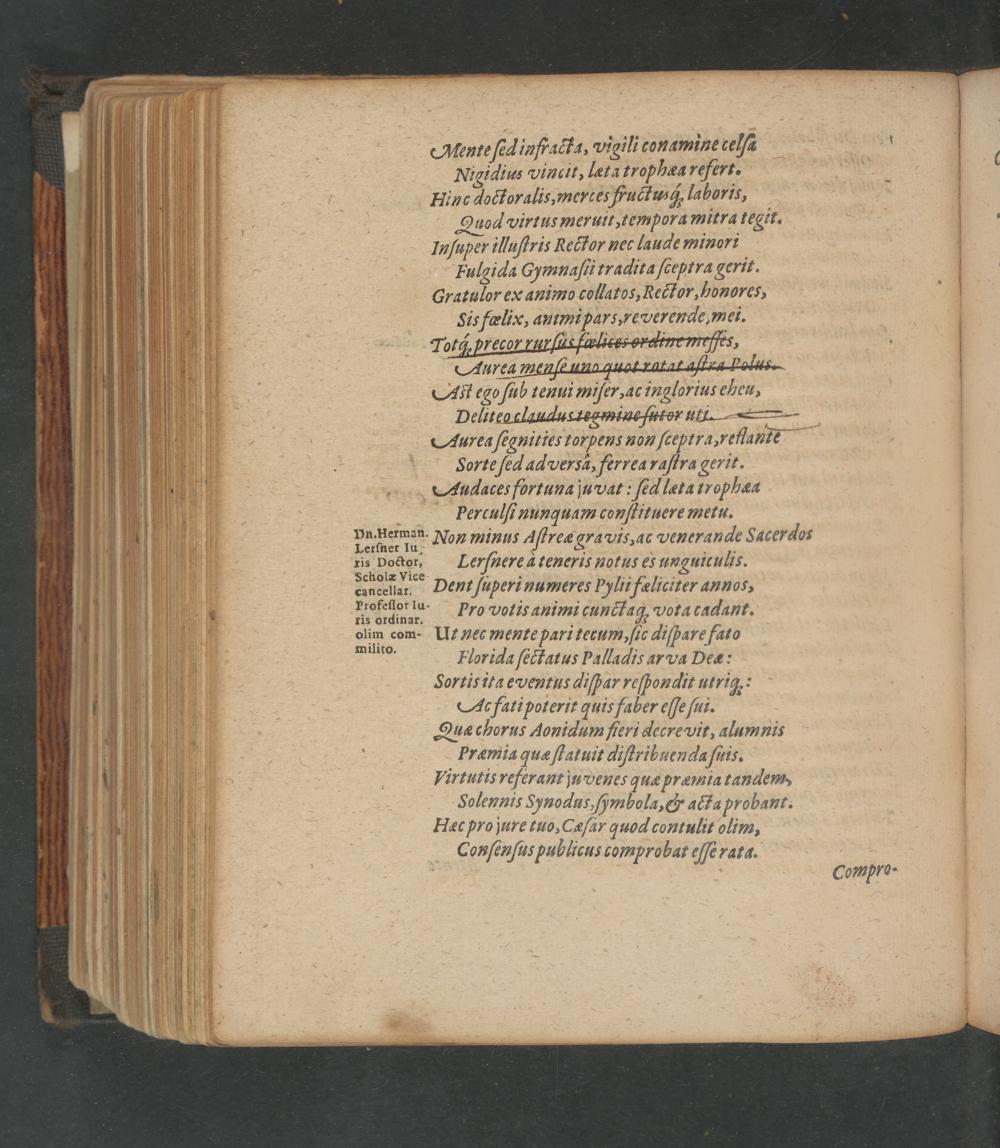 Mente sed infracta, vigili conamine celsa
Nigidius vincit, læta trophæa refert.
Hinc doctoralis, merces fructusq́; laboris,
Quod virtus meruit, tempora mitra tegit.
Insuper illustris Rector nec laude minori
Fulgida Gymnasii tradita sceptra gerit.
Gratulor ex animo collatos, Rector, honores,
Sis fœlix, animi pars, reverende, mei.
Totq́; precor rursus fœlices ordine messes,
Aurea mense uno quot rotat astra Polus.
Ast ego sub tenui miser, ac inglorius eheu,
Deliteo claudus tegmine sutor uti.
Aurea segnities torpens non sceptra, reflante
Sorte sed adversâ, ferrea rastra gerit.
Audaces fortuna juvat: sed læta trophæa
Perculsi nunquam constituere metu.
Dn. Herman.
Lersner Iu-
ris Doctor,
Scholæ Vice
cancellar.
Professor Iu-
ris ordinar.
olim com-
milito.
Non minus Astreæ gravis, ac venerande Sacerdos
Lersnere à teneris notus es unguiculis.
Dent superi numeres Pylii fæliciter annos,
Pro votis animi cunctaq; vota cadant.
Ut nec mente pari tecum, sic dispare fato
Florida sectatus Palladis arva Deæ:
Sortis ita eventus dispar respondit utriq;:
Ac fati poterit quis faber esse sui.
Quæ chorus Aonidum fieri decrevit, alumnis
Præmia quæ statuit distribuenda suis.
Virtutis referant juvenes quæ præmia tandem,
Solennis Synodus, symbola, & acta probant.
Hæc pro jure tuo, Cæsar quod contulit olim,
Consensus publicus comprobat esse rata.
Compro-